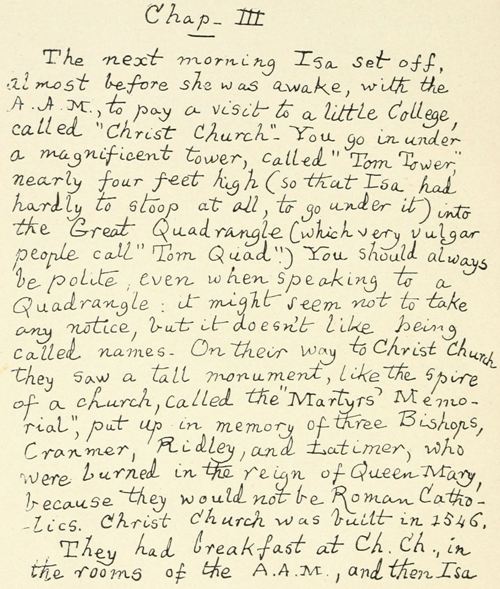 Chap- III
The next morning Isa set off,
almost before she was awake, with the
A.A.M., to pay a visit to a little College,
called "Christ Church". You go in under
a magnificent tower, called "Tom Tower",
nearly four feet high (so that Isa had
hardly to stoop at all, to go under it) into
the Great Quadrangle (which very vulgar
people call "Tom Quad".) You should always
be polite, even when speaking to a
Quadrangle: it might seem not to take
any notice, but it doesn't like being
called names. On their way to Christ Church
they saw a tall monument, like the spire
of a church, called the "Martyrs' Memo-
rial", put up in memory of three Bishops,
Cranmer, Ridley, and Latimer, who
were burned in the reign of Queen Mary,
because they would not be Roman Catho-
-lics. Christ Church was built in 1546.
They had breakfast at Ch. Ch., in
the rooms of the A.A.M., and then Isa